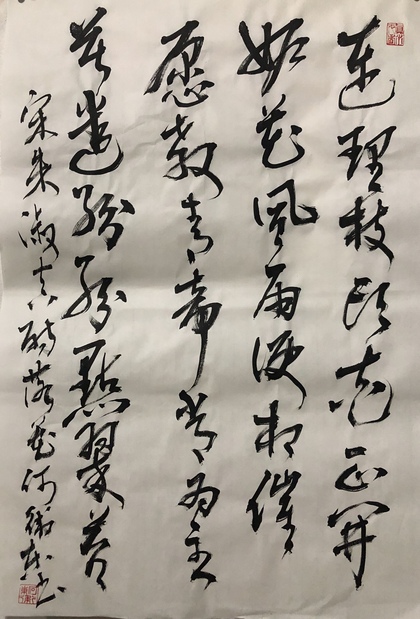 連理枝頭花正開
妬花風雨便相催
愿教青帝常為主
莫遣紛紛點翠苔
宋朱淑真詩落花何